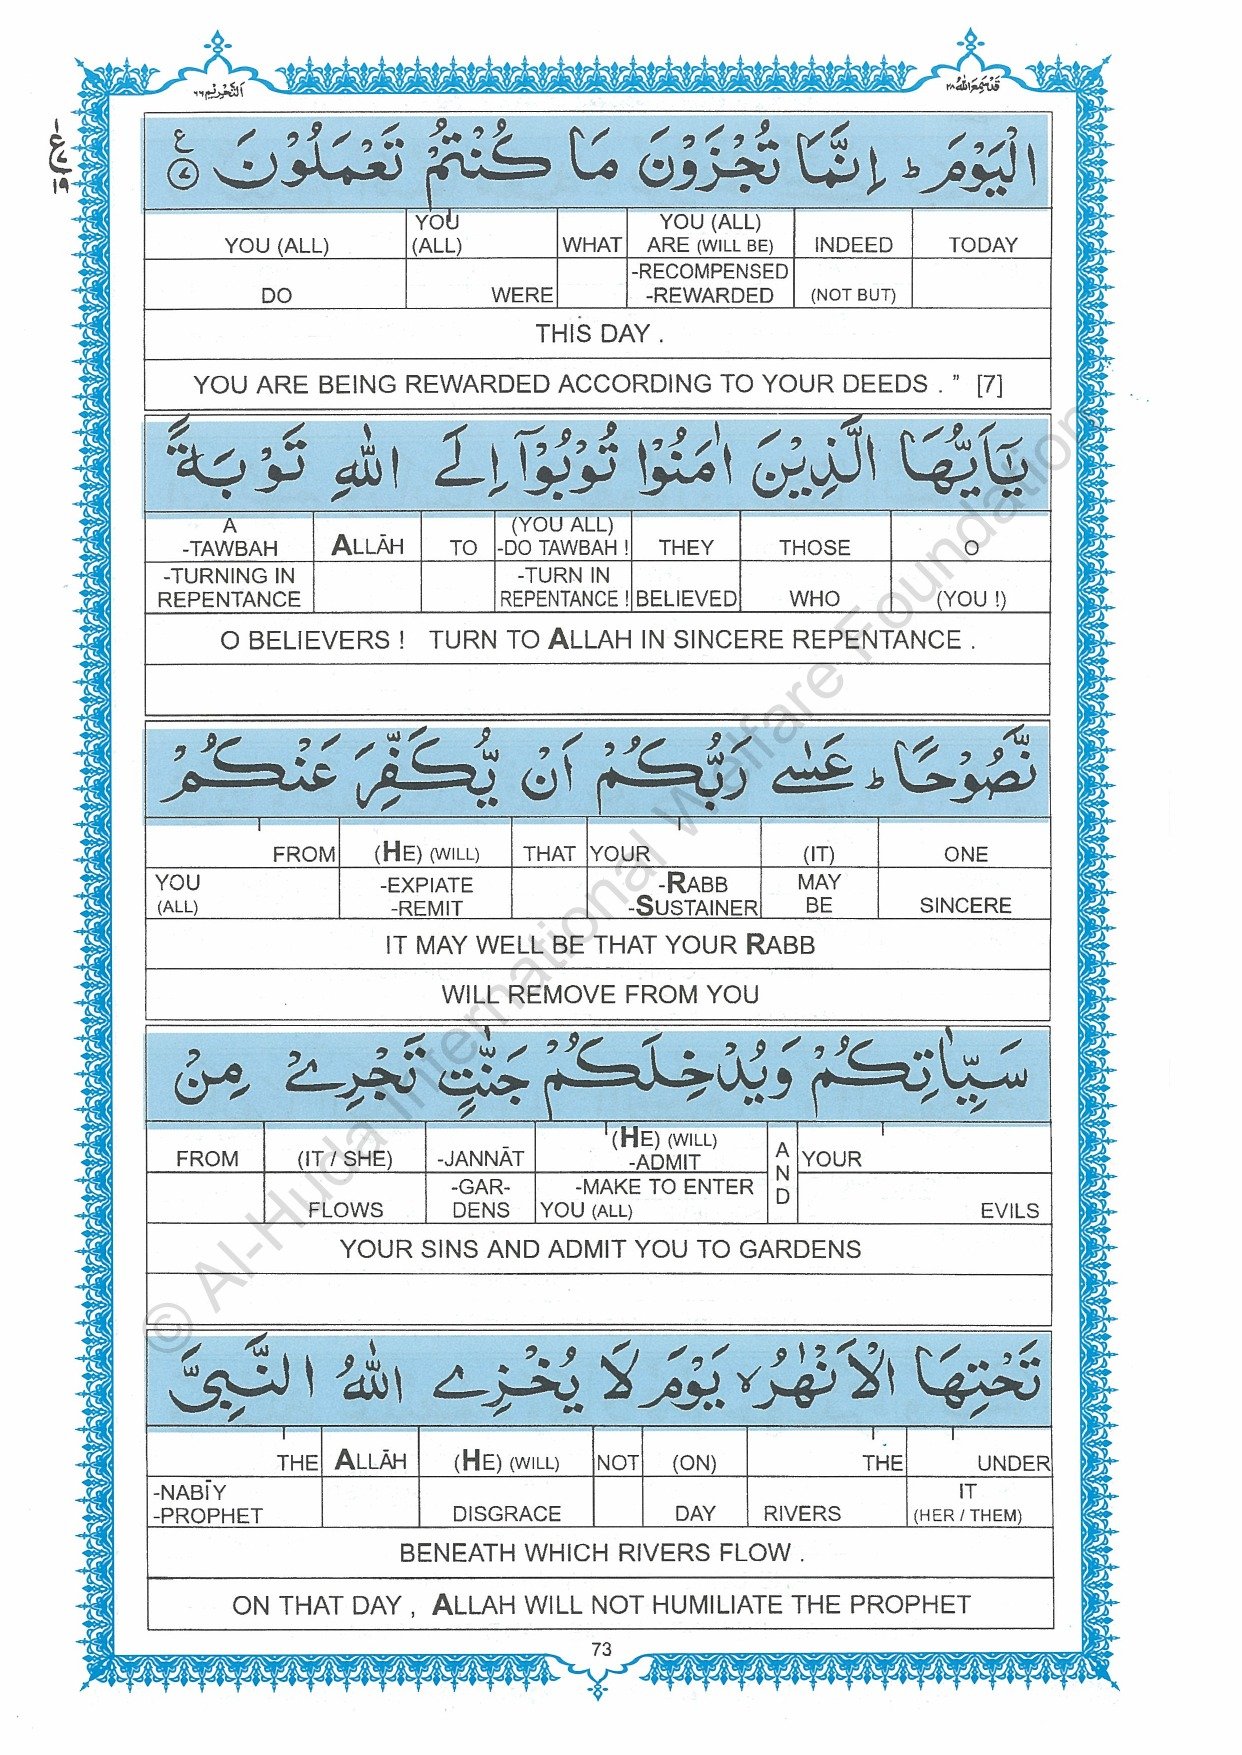 التحريم ٦٦
قد سمع الله ٢٨
ع ١٩
الْيَوْمَ ؕ اِنَّمَا تُجْزَوْنَ مَا كُنْتُمْ تَعْمَلُوْنَ ع ٧
YOU (ALL) YOU (ALL) WHAT YOU (ALL) ARE (WILL BE) INDEED TODAY
DO WERE -RECOMPENSED -REWARDED (NOT BUT)
THIS DAY .
YOU ARE BEING REWARDED ACCORDING TO YOUR DEEDS . ” [7]
يٰۤاَيُّهَا الَّذِيْنَ اٰمَنُوْا تُوْبُوْۤا اِلَى اللّٰهِ تَوْبَةً
A -TAWBAH ALLĀH TO (YOU ALL) -DO TAWBAH ! THEY THOSE O
-TURNING IN REPENTANCE -TURN IN REPENTANCE ! BELIEVED WHO (YOU !)
O BELIEVERS ! TURN TO ALLAH IN SINCERE REPENTANCE .
نَّصُوْحًا ؕ عَسٰى رَبُّكُمْ اَنْ يُّكَفِّرَ عَنْكُمْ
FROM (HE) (WILL) THAT YOUR (IT) ONE
YOU (ALL) -EXPIATE -REMIT -RABB -SUSTAINER MAY BE SINCERE
IT MAY WELL BE THAT YOUR RABB
WILL REMOVE FROM YOU
سَيِّاٰتِكُمْ وَيُدْخِلَكُمْ جَنّٰتٍ تَجْرِيْ مِنْ
FROM (IT / SHE) -JANNĀT (HE) (WILL) -ADMIT AND YOUR
FLOWS -GAR- DENS -MAKE TO ENTER YOU (ALL) EVILS
YOUR SINS AND ADMIT YOU TO GARDENS
تَحْتِهَا الْاَنْهٰرُ ۙ يَوْمَ لَا يُخْزِي اللّٰهُ النَّبِيَّ
THE ALLĀH (HE) (WILL) NOT (ON) THE UNDER
-NABĪY -PROPHET DISGRACE DAY RIVERS IT (HER / THEM)
BENEATH WHICH RIVERS FLOW .
ON THAT DAY , ALLAH WILL NOT HUMILIATE THE PROPHET
73
© Al-Huda International Welfare Foundation